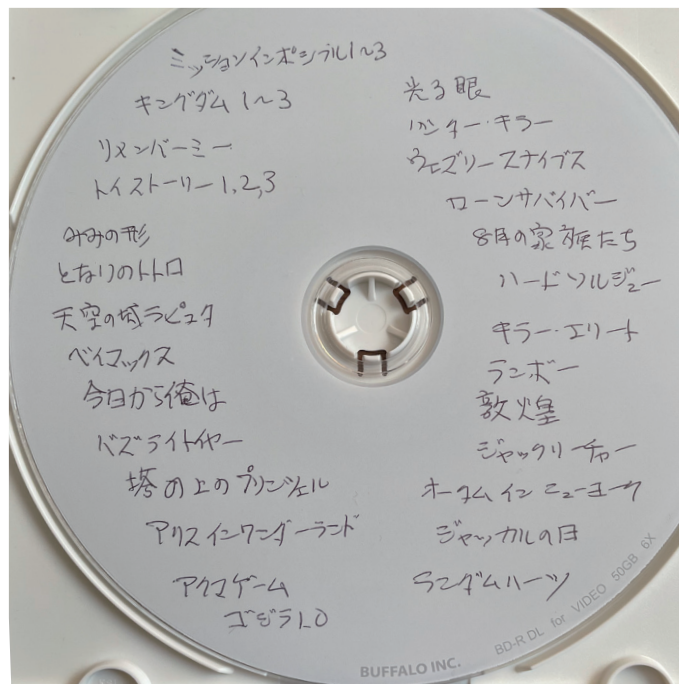 ミッションインポシブル1～3
キングダム 1～3
リメンバーミー
トイストーリー1,2,3
みみの形
となりのトトロ
天空の城ラピュタ
ベイマックス
今日から俺は
バズライトイヤー
塔の上のプリンツェル
アリスインワンダーランド
アクマゲーム
ゴジラ1.0
光る眼
ハンター・キラー
ウェズリースナイプス
ローンサバイバー
8月の家族たち
ハードソルジュー
キラー・エリート
ランボー
敦煌
ジャックリーチャー
オータムインニューヨーク
ジャッカルの日
ランダムハーツ
BUFFALO INC.
BD-R DL for VIDEO 50GB 6X